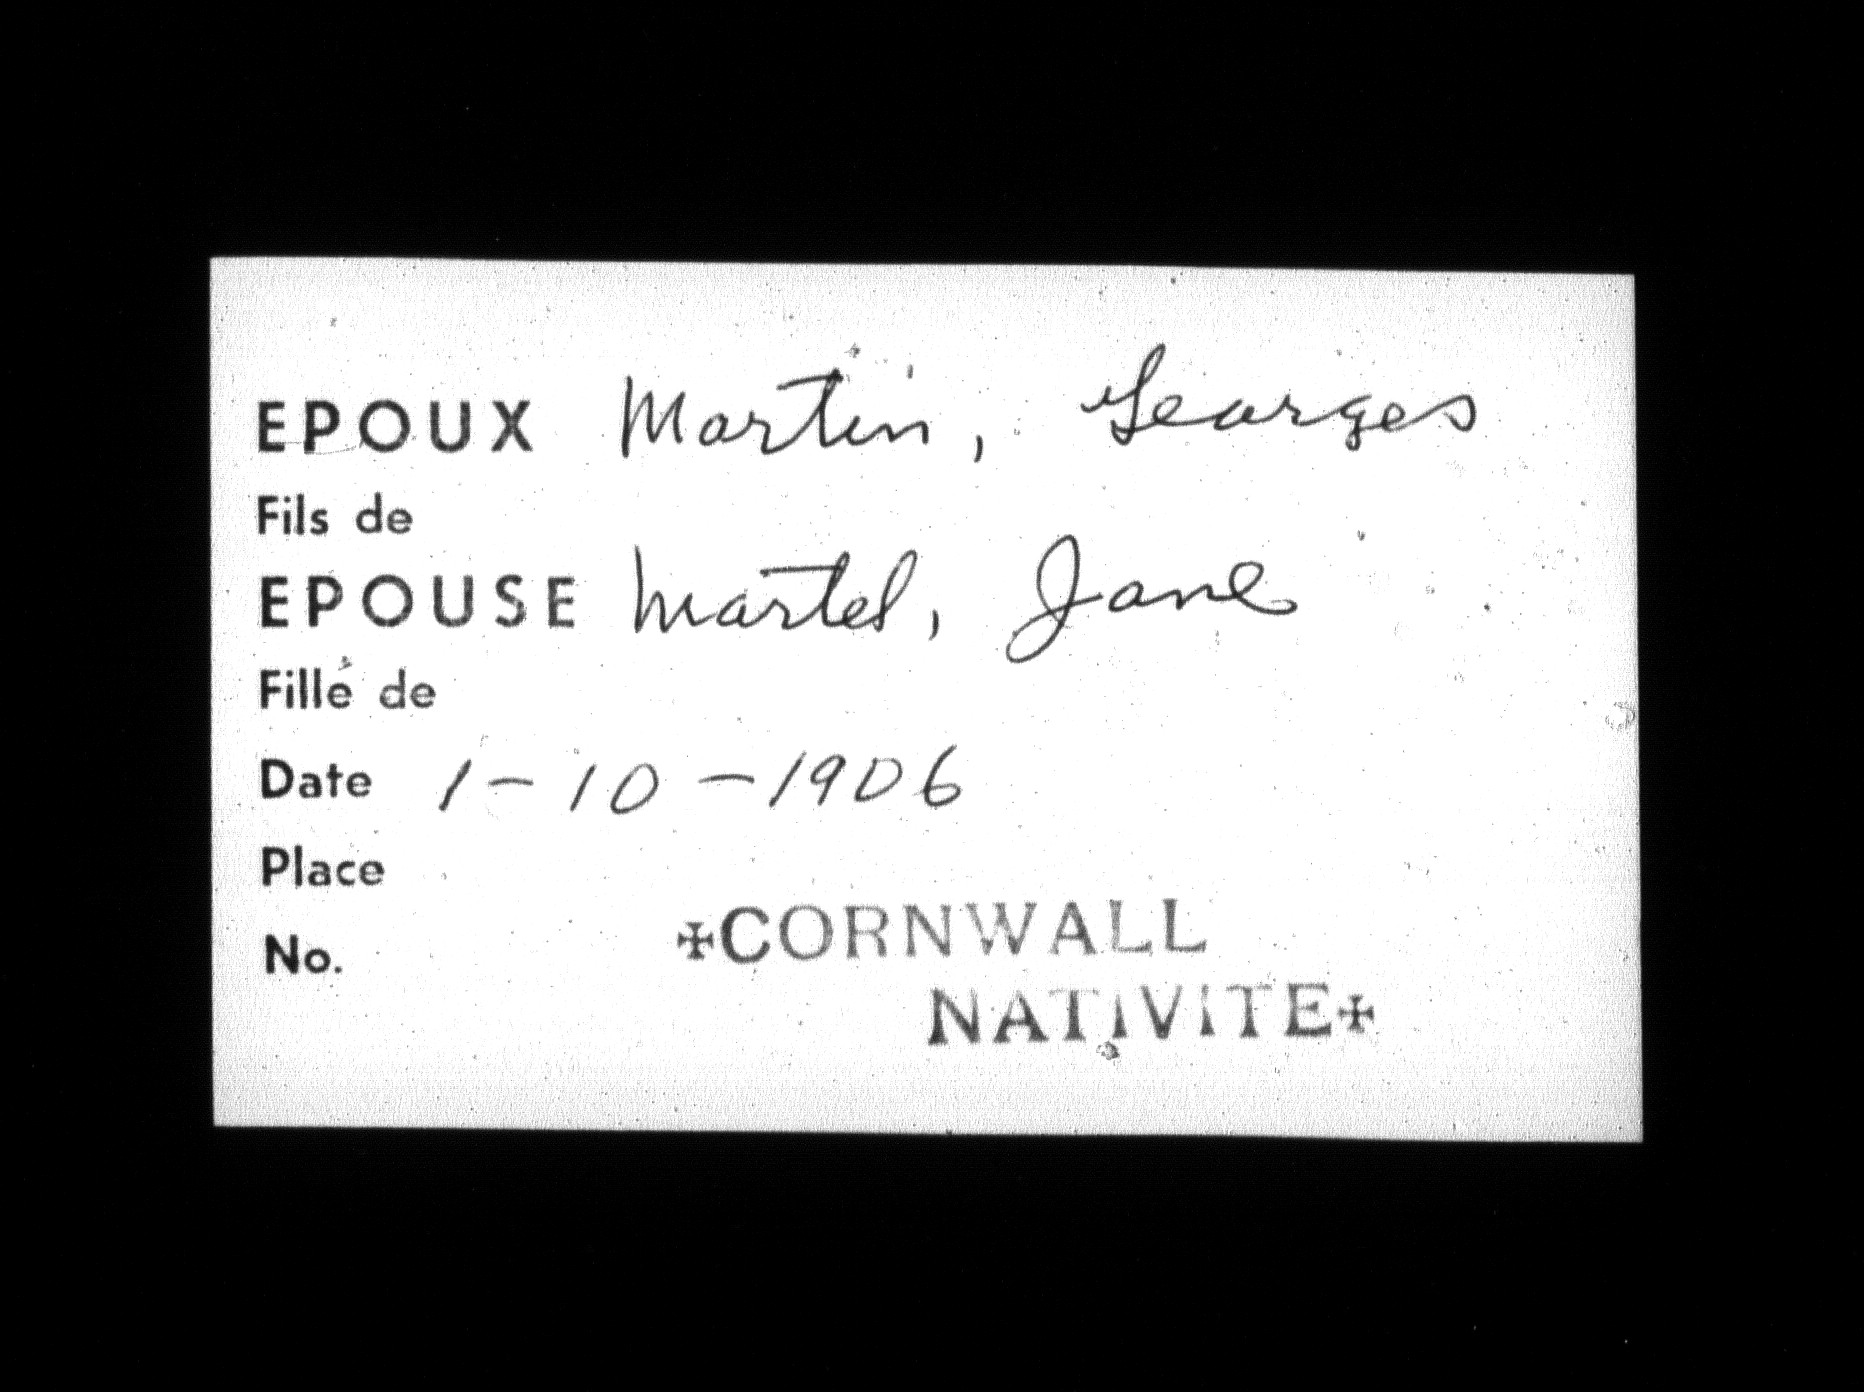 EPOUX Martin, Georges
Fils de
EPOUSE Martel, Jane
Fille de
Date 1-10-1906
Place
No.
✠CORNWALL
NATIVITE✠